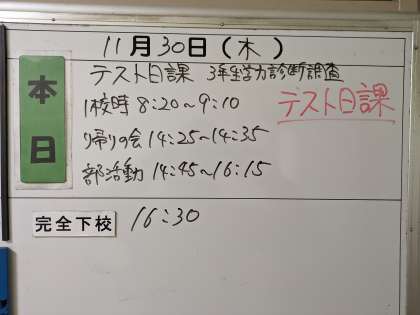 11月30日(木)
本日
テスト日課 3年生学力診断調査
テスト日課
1校時 8:20~9:10
帰りの会 14:25~14:35
部活動 14:45~16:15
完全下校 16:30